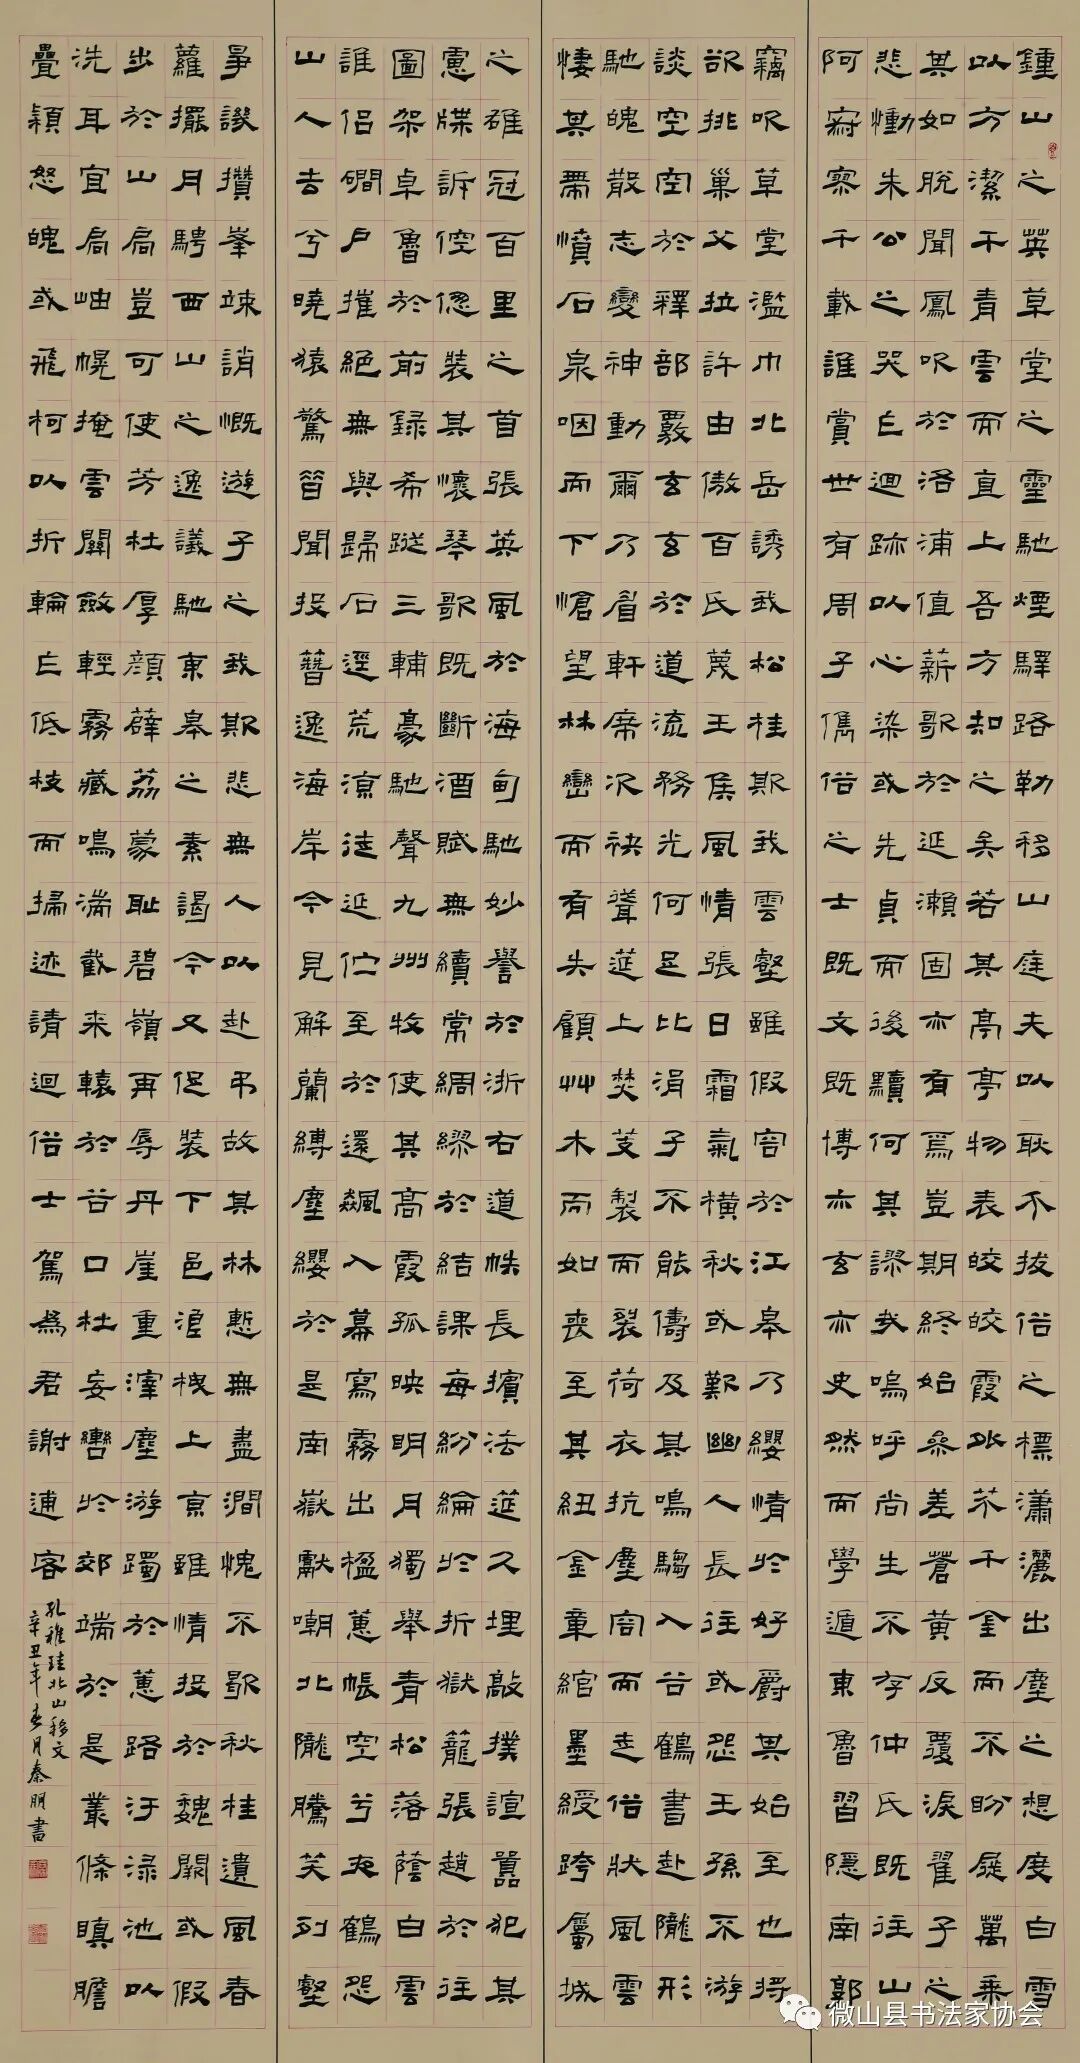 鍾山之英草堂之靈馳煙驛路勒移山庭夫以耿不拔俗之標瀟灑出塵之想度白雪
以方潔干青雲而直上吾方知之矣若其亭亭物表皎皎霞外芥千金而不盼屣萬乘
其如脫聞鳳吹於洛浦值薪歌於延瀨固亦有焉豈期終始參差蒼黃反覆淚翟子之
悲慟朱公之哭乍迴跡以心染或先貞而後黷何其謬哉嗚呼尚生不存仲氏既往山
阿寂寥千載誰賞世有周子儁俗之士既文既博亦玄亦史然而學遁東魯習隱南郭
竊吹草堂濫巾北岳誘我松桂欺我雲壑雖假容於江皋乃纓情於好爵其始至也將
欲排巢父拉許由傲百氏蔑王侯風情張日霜氣橫秋或歎幽人長往或怨王孫不游
談空空於釋部覈玄玄於道流務光何足比涓子不能儔及其鳴騶入谷鶴書赴隴形
馳魄散志變神動爾乃眉軒席次袂聳筵上焚芰製而裂荷衣抗塵容而走俗狀風雲
悽其帶憤石泉咽而下愴望林巒而有失顧艸木而如喪至其紐金章綰墨綬跨屬城
之雄冠百里之首張英風於海甸馳妙譽於浙右道帙長擯法筵久埋敲撲諠囂犯其
慮牒訴倥傯裝其懷琴歌既斷酒賦無續常綢繆於結課每紛綸於折獄籠張趙於往
圖架卓魯於前錄希蹤三輔豪馳聲九州牧使其高霞孤映明月獨舉青松落蔭白雲
誰侶磵戶摧絕無與歸石逕荒涼徒延佇至於還飆入幕寫霧出楹蕙帳空兮夜鶴怨
山人去兮曉猿驚昔聞投簪逸海岸今見解蘭縛塵纓於是南嶽獻嘲北隴騰笑列壑
爭譏攢峯竦誚慨遊子之我欺悲無人以赴弔故其林慙無盡澗愧不歇秋桂遺風春
蘿擺月騁西山之逸議馳東皋之素謁今又促裝下邑浪栧上京雖情投於魏闕或假
步於山扃豈可使芳杜厚顏薜荔蒙恥碧嶺再辱丹崖重滓塵游躅於蕙路汙淥池以
洗耳宜扃岫幌掩雲關斂輕霧藏鳴湍截來轅於谷口杜妄轡於郊端於是叢條瞋膽
疊穎怒魄或飛柯以折輪乍低枝而掃迹請迴俗士駕為君謝逋客
孔稚珪北山移文
辛丑年春月秦朋書
微山县书法家协会